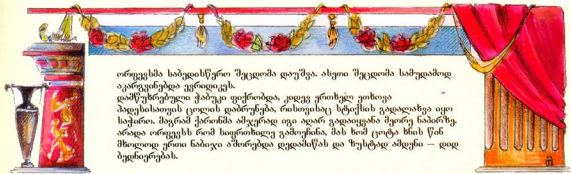 ორფევსმა საბედისწერო შეცდომა დაუშვა. ასეთი შეცდომა სამუდამოდ
აკარგვინებდა ევრიდიკეს.
დამწუხრებული ჭაბუკი ფიქრობდა, კიდევ ერთხელ ეთხოვა
ჰადესისათვის ცოლის დაბრუნება, რისთვისაც სტიქსის გადალახვა იყო
საჭირო. მაგრამ ქარონმა ამჯერად იგი აღარ გადაიყვანა მეორე ნაპირზე.
არადა ორფევსს რომ სიფრთხილე გამოეჩინა, მას ხომ ცოტა ხნის წინ
მხოლოდ ერთი ნაბიჯი აშორებდა დედამიწას და ზუსტად ამდენი — დიდ
ბედნიერებას.